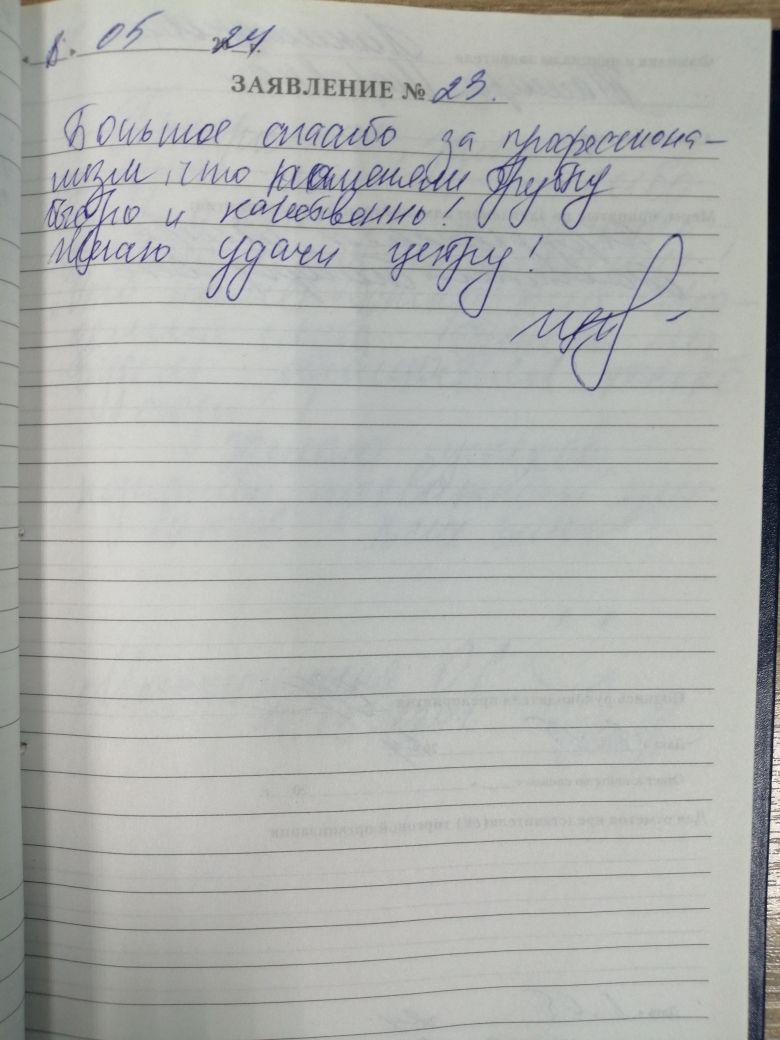 « 8 » 05 2024 г.
ЗАЯВЛЕНИЕ № 23.
Большое спасибо за профессиона-
лизм, что поменяли трубку
быстро и качественно!
Желаю удачи центру!